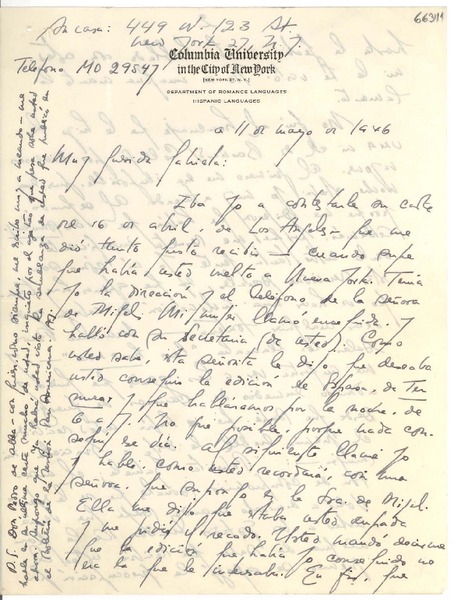 663/11
Su casa: 449 W. 123 St.
New York 27 N.Y.
Columbia University
in the City of New York
[NEW YORK 27, N.Y.]
Teléfono MO 29547
DEPARTMENT OF ROMANCE LANGUAGES
HISPANIC LANGUAGES
a 11 de mayo de 1946
Muy querida Gabriela:
Iba yo a contestarle su carta
de 16 de abril, de Los Angeles que me
dió tanto gusto recibir — cuando supe
que había usted vuelto a Nueva York. Tenía
yo la dirección y el teléfono de la señora
de Mi mujer llamó enseguida, y
habló con su secretaria (de usted). Como
usted sabe, esta señorita le dijo que deseaba
usted conseguir la edición de España, de Ter
nura; y que llamáramos por la noche, de
6 a 7. No fué posible, porque nada con-
seguí ese día. Al siguiente llamé yo
y hablé, como usted recordará, con una
señora, que supongo es la Sra. de
Ella me dijo que estaba usted ocupada
y me pidió el recado. Usted mandó decirme
que la edición que había yo conseguido no
era la que le interesaba. En fin, que
P.S. Don Pedro de Alba — con quien, como siempre, me escribo muy a menudo — me
habla en su última carta mucho de usted
usted
el Boletín de la Unión Panamericana.